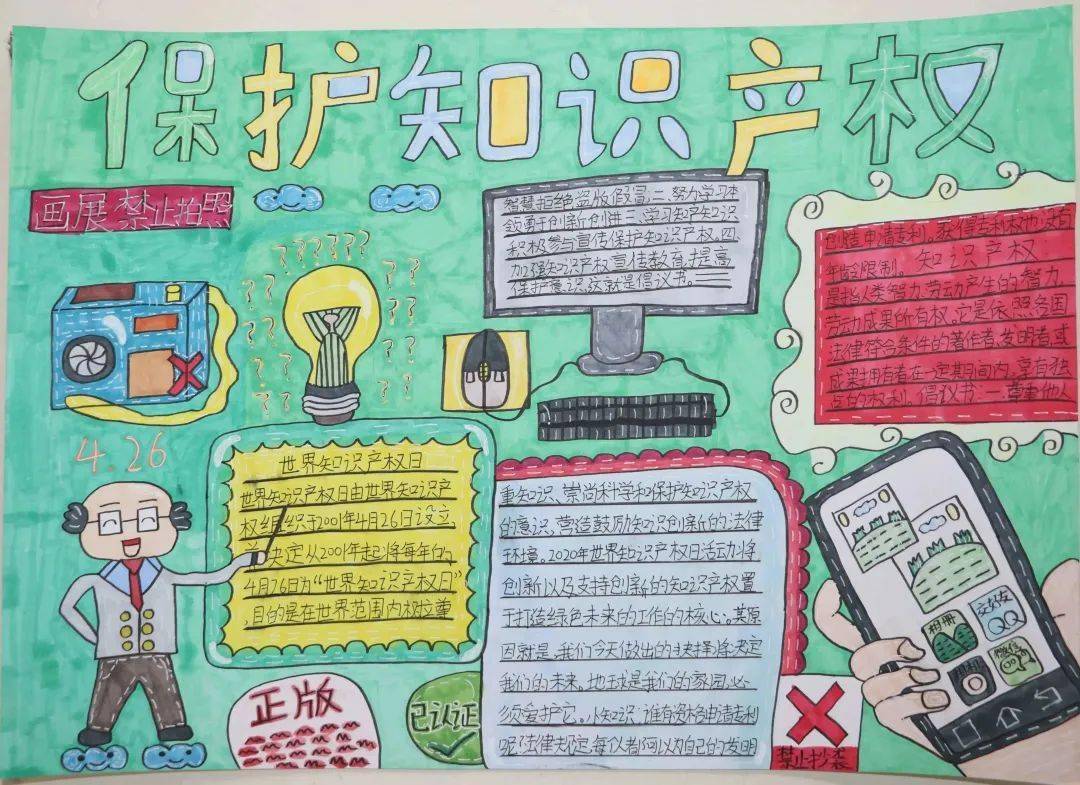 保护知识产权
画展禁止拍照
智慧拒绝盗版假冒;二、努力学习本
领勇于创新创造三、学习知产知识
积极参与宣传保护知识产权。四、
加强知识产权宣传教育,提高
保护意识,这就是倡议书。
创造申请专利。获得专利权也没有
年龄限制。知识产权
是指人类智力劳动产生的智力
劳动成果所有权,它是依照各国
法律符合条件的著作者、发明者、或
成果拥有者在一定期间内,享有独
占的权利。倡议书:一、尊重他人
? ? ? ? ? ?
4.26
世界知识产权日
世界知识产权日由世界知识产
权组织于2001年4月26日设立
并决定从2001年起将每年的
4月26日为“世界知识产权日”
,目的是在世界范围内树立尊
重知识、崇尚科学和保护知识产权
的意识,营造鼓励知识创新的法律
环境。2020年世界知识产权日活动将
创新以及支持创新的知识产权置
于打造绿色未来的工作的核心。其原
因就是,我们今天做出的抉择将决定
我们的未来。地球是我们的家园,必
须爱护它。小知识,谁有资格申请专利
呢?法律规定每个人都可以为自己的发明
相册
交好友
QQ
微信
正版
已认证
禁止抄袭